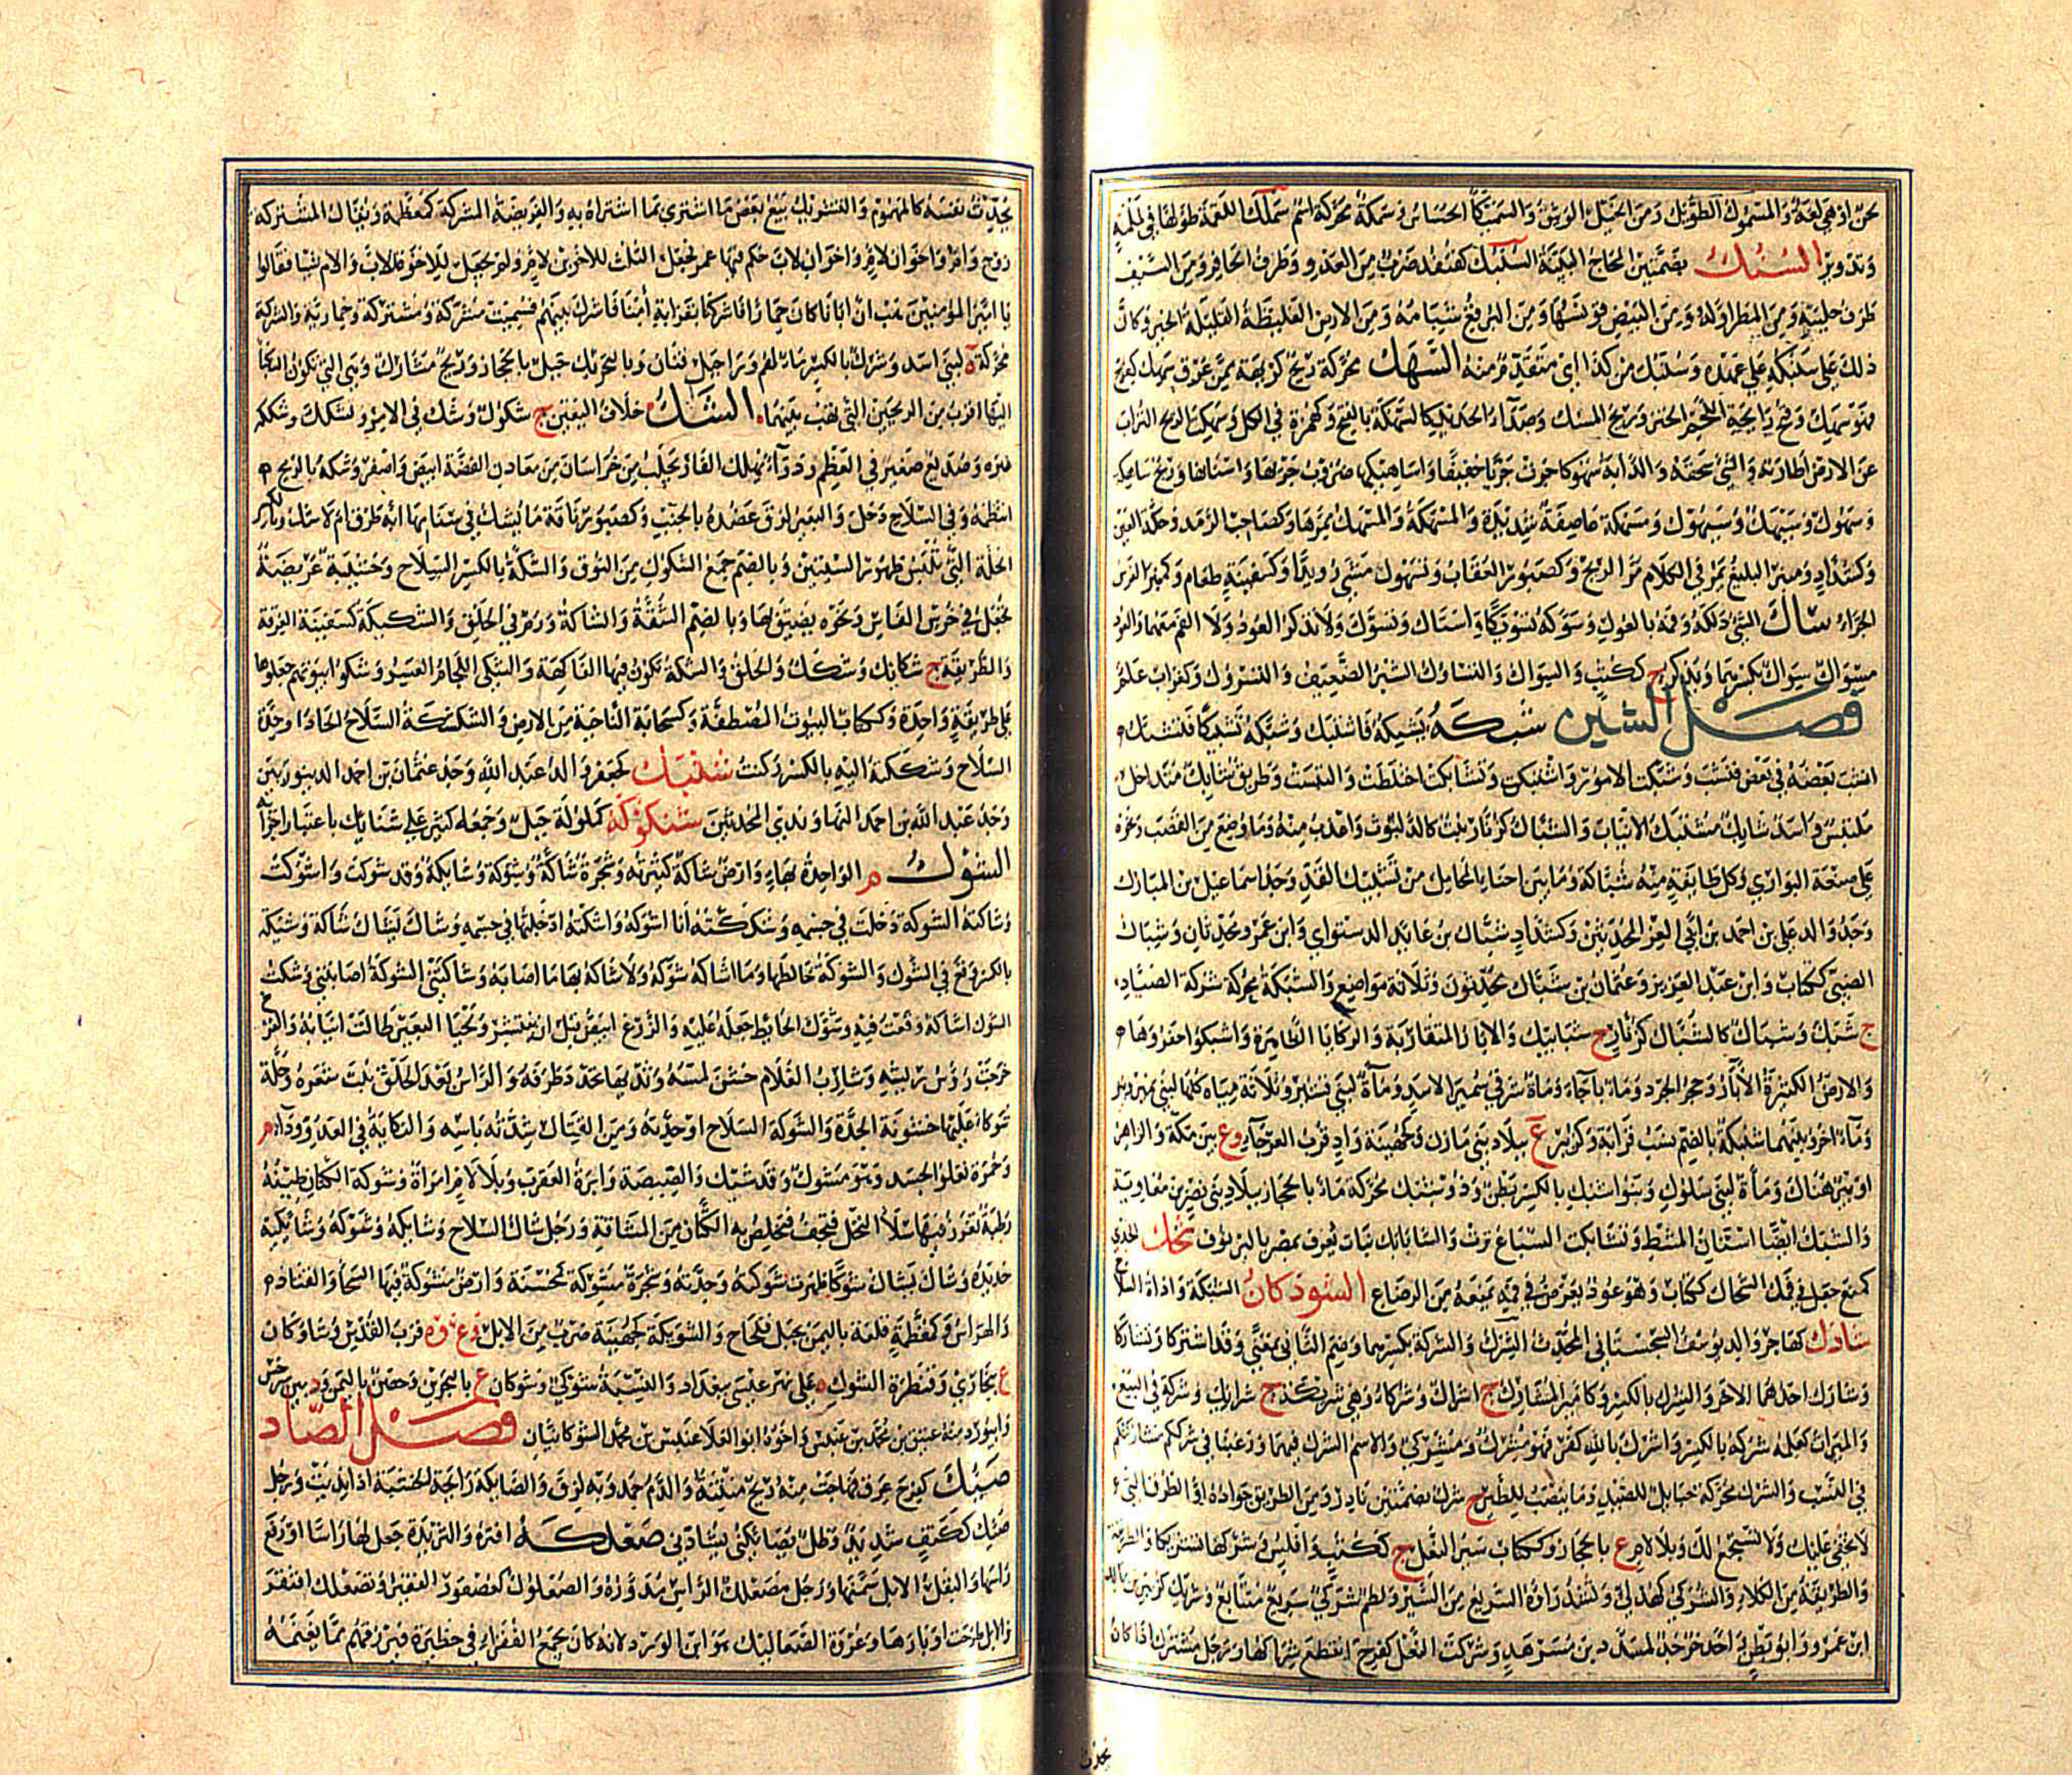 وتدوير السُنُبك بضمتين
طرف حليته ومن المطر اوله ومن البيض قونسها ومن البرقع شبامه ومن الارض الغليظة القليلة الخير وكان
ذلك على سنبكه على عهده وسنبك من كذا اى متقدم منه السَّهَك محركة ريح كريهة ممن عرق سهك كفرح
فهو سهك وقبح رايحة اللحم الخنز وريح السمك وصدأ الحديد كالسهكة بالفتح وكهمزة في الكل وسهكت الريح التراب
عن الارض اطارته والشئ سحقه والدابة سهوكا جرت جريا خفيفا واساهيكها ضروب جريها واستنانها وريح ساهكة
وسهوك وسيهك وسيهوك ومسهكة عاصفة شديدة والمسهكة والمسهك ممرها وكصاحب الرمد وحكة العين
وكشداد ومنبر البليغ يمر في الكلام مر الريح وكصبور العقاب وتسهوك مشى رويدا وكسفينة طعام وكمنبر الفرس
الجراء ساك الشئ دلكه وفمه بالعود وسوكه تسويكا واستاك وتسوك ولا تذكر العود ولا الفم معهما والعود
مسواك سواك بكسرهما ويذكر ج ككتب والسواك والتساوك السير الضعيف والتسروك وكغراب علم
فصل الشين شبكه يشبكه فاشتبك وشبكه تشبيكا فتشبك
انشب بعضه في بعض فنشب وشبكت الامور واشتبكت وتشابكت اختلطت والتبست وطريق شابك متداخل
ملتبس واسد شابك مشتبك الانياب والشباك كزنار نبت كالدلبوث واعذب منه وما وضع من القصب ونحوه
على صنعة البواري وكل طايفة منه شباكة وما بين احناء المحامل من تشبيك القد وجد اسماعيل بن المبارك
وجد والد على بن احمد بن ابي العز المحدثين وكشداد شباك بن عايذ الدستواي وابن عمرو محدثان وشباك
الضبي ككتاب وابن عبد العزيز وعثمان بن شباك محدثون وثلاثة مواضع والشبكة محركة شركة الصياد
ج شبك وشباك كالشباك كزنار ج شبابيك والابار المتقاربة والركايا الظاهرة واشبكوا حفروها
والارض الكثيرة الابار وجحر الجرذ وماء باجاء وماءة شرقي سميراء لاسد وماءة لبني قشير وثلاثة مياه كلها لبني نمير
وماء اخر وبينهما شبكة بالضم نسب قرابة وكزبير ع ببلاد بني مازن وكجهينة واد قرب العرجاء وع بين مكة والزاهر
او بئر هناك وماءة لبني سلول وبنو شبك بالكسر بطن وذو شبك محركة ماء بالحجاز ببلاد بني نصر بن معاوية
والشبك ايضا اسنان المشط وتشابكت السباع نزت والشابابك نبات يعرف بمصر بالبرنوف شحك الجدي
كمنع جعل في فمه الشحاك ككتاب وهو عود يعرض في فمه يمنعه من الرضاع الشودكان الشبكة واداة السلاح
شادك كهاجر والد يوسف السجستاني المحدث الشرك والشركة بكسرهما وضم الثاني بمعنى وقد اشتركا وتشاركا
وشارك احدهما الاخر والشرك بالكسر وكامير المشارك ج اشراك وشركاء وهي شريكة ج شرايك وشركه في البيع
والميراث كعلمه شركة بالكسر واشرك بالله كفر فهو مشرك ومشركي والاسم الشرك فيهما ورغبنا في شرككم مشاركتكم
في النسب والشرك محركة حبايل للصيد وما ينصب للطير ج شرك بضمتين نادر ومن الطريق جواده او الطرق التي
لا تخفى عليك ولا تستجمع لك وبلا لام ع بالحجاز وككتاب سير النعل ج ككتب
والطريقة من الكلاء والشركي كهذلي وتشدد راؤه السريع من السير ولطم شركي سريع متتابع وشريك كزبير
ابن عمرو وابو بطن احدهم جد لمسدد بن مسرهد وشركت النعل كفرح انقطع شراكها ورجل مشترك اذا كان
يحدث
يحدث نفسه كالمهموم والتشريك بيع بعض ما اشترى بما اشتراه به والفريضة المشركة كمعظمة ويقال المشتركة
زوج وام واخوان لام واخوان لاب وام حكم فيها عمر فجعل الثلث للاخوين لام ولم يجعل للاخوة للاب والام شيئا فقالوا
يا امير المؤمنين هب ان ابانا كان حمارا فاشركنا بقرابة امنا فاشرك بينهم فسميت مشركة ومشتركة وحمارية والشركة
محركة ة لبني اسد وشرك بالكسر ماء لهم وراء جبل قنان وبالتحريك جبل بالحجاز وريح مشارك وهي التي تكون النكباء
اليها اقرب من الريحين التي تهب بينهما الشك خلاف اليقين ج شكوك وشك في الامر وتشكك وشككه
غيره وصديع صغير في العظم ودواء يهلك الفار يجلب من خراسان من معادن الفضة ابيض واصفر وشكه بالرمح
انتظمه وفي السلاح دخل والبعير لزق عضده بالجنب وكصبور ناقة ما يشك في سنامها ابه طرق ام لا
الحلة التي تلبس ظهور السيتين وبالضم جمع الشكوك من النوق والشكة بالكسر السلاح وخشبة عريضة
تجعل في خرت الفاس ونحوه يضيق بها وبالضم الشقة والشاكة ورم في الحلق والشكيكة كسفينة الفرقة
والطريقة ج شكايك وشكك والخلق والسلة تكون فيها الفاكهة والشكى اللجام العسير وشكوا بيوتهم جعلوها
على طريقة واحدة وككتاب البيوت المصطفة وكسحابة الناحية من الارض والشكشكة السلاح الحاد او حدة
السلاح وشككت اليه بالكسر ركنت شنبك كجعفر والد عبد الله وجد عثمان بن احمد الدينوريين
وجد عبد الله بن احمد النهاوندي المحدثين شنكوكة كملولة جبل وجمعه كثير على شنايك باعتبار اجزائه
الشوك م الواحدة بهاء وارض شاكة كثيرته وشجرة شاكة وشوكة وشايكة وقد شوكت واشوكت
وشاكته الشوكة دخلت في جسمه وشكته انا اشوكه واشكته ادخلتها في جسمه وشاك يشاك شاكة وشيكة
بالكسر وقع في الشوك والشوكة خالطها وما اشاكه شوكة ولا شاكه بها ما اصابه وشاكتني الشوكة اصابتني وشكت
الشوك اشاكه وقعت فيه وشوك الحايط جعله عليه والزرع ابيض قبل ان ينتشر ولحيا البعير طالت انيابه والفرخ
خرجت رؤس ريشه وشارب الغلام خشن لمسه وثديها تحدد طرفه والراس بعد الحلق نبت شعره وحلة
شوكاء عليها خشونة الجدة والشوكة السلاح او حدته ومن القتال شدة باسه والنكاية في العدو وداء م
وحمرة تعلو الجسد وهو مشوك وقد شيك والصيصة وابرة العقرب وبلا لام امراة وشوكة الكتان طينة
رطبة تغرز فيها سلاء النخل فتجف فتخلص به الكتان من المشاقة ورجل شاك السلاح وشايكه وشوكه وشاكيه
حديده وشاك يشاك شوكا ظهرت شوكته وحدته وشجرة مشوكة كمحسنة وارض مشوكة فيها السحا والقتاد
والهراس وكمعظمة قلعة باليمن بجبل قلحاح والشويكة كجهينة ضرب من الابل وع وة قرب القدس وشاوكان
ع ببخارى وقنطرة الشوك ة على نهر عيسى ببغداد والنسبة شوكي وشوكان ع بالبحرين وحصن باليمن ود بين سرخس
وابيورد منه عتيق بن محمد بن عبيس واخوه ابو العلا عبيس بن محمد الشوكانيان فصل الصاد
صئك كفرح عرق فهاجت منه ريح منتنة والدم جمد وبه لزق والصائكة رايحة الخشبة اذا نديت ورجل
صئك ككتف شديد وظل يصايكني يشادني صعلكه افقره والثريدة جعل لها راسا او رفع
راسها والبقل الابل سمنها ورجل مصعلك الراس مدوره والصعلوك كعصفور الفقير وتصعلك افتقر
والابل طرحت اوبارها وعروة الصعاليك هو ابن الورد لانه كان يجمع الفقراء في حظيرة فيرزقهم مما يغنمه